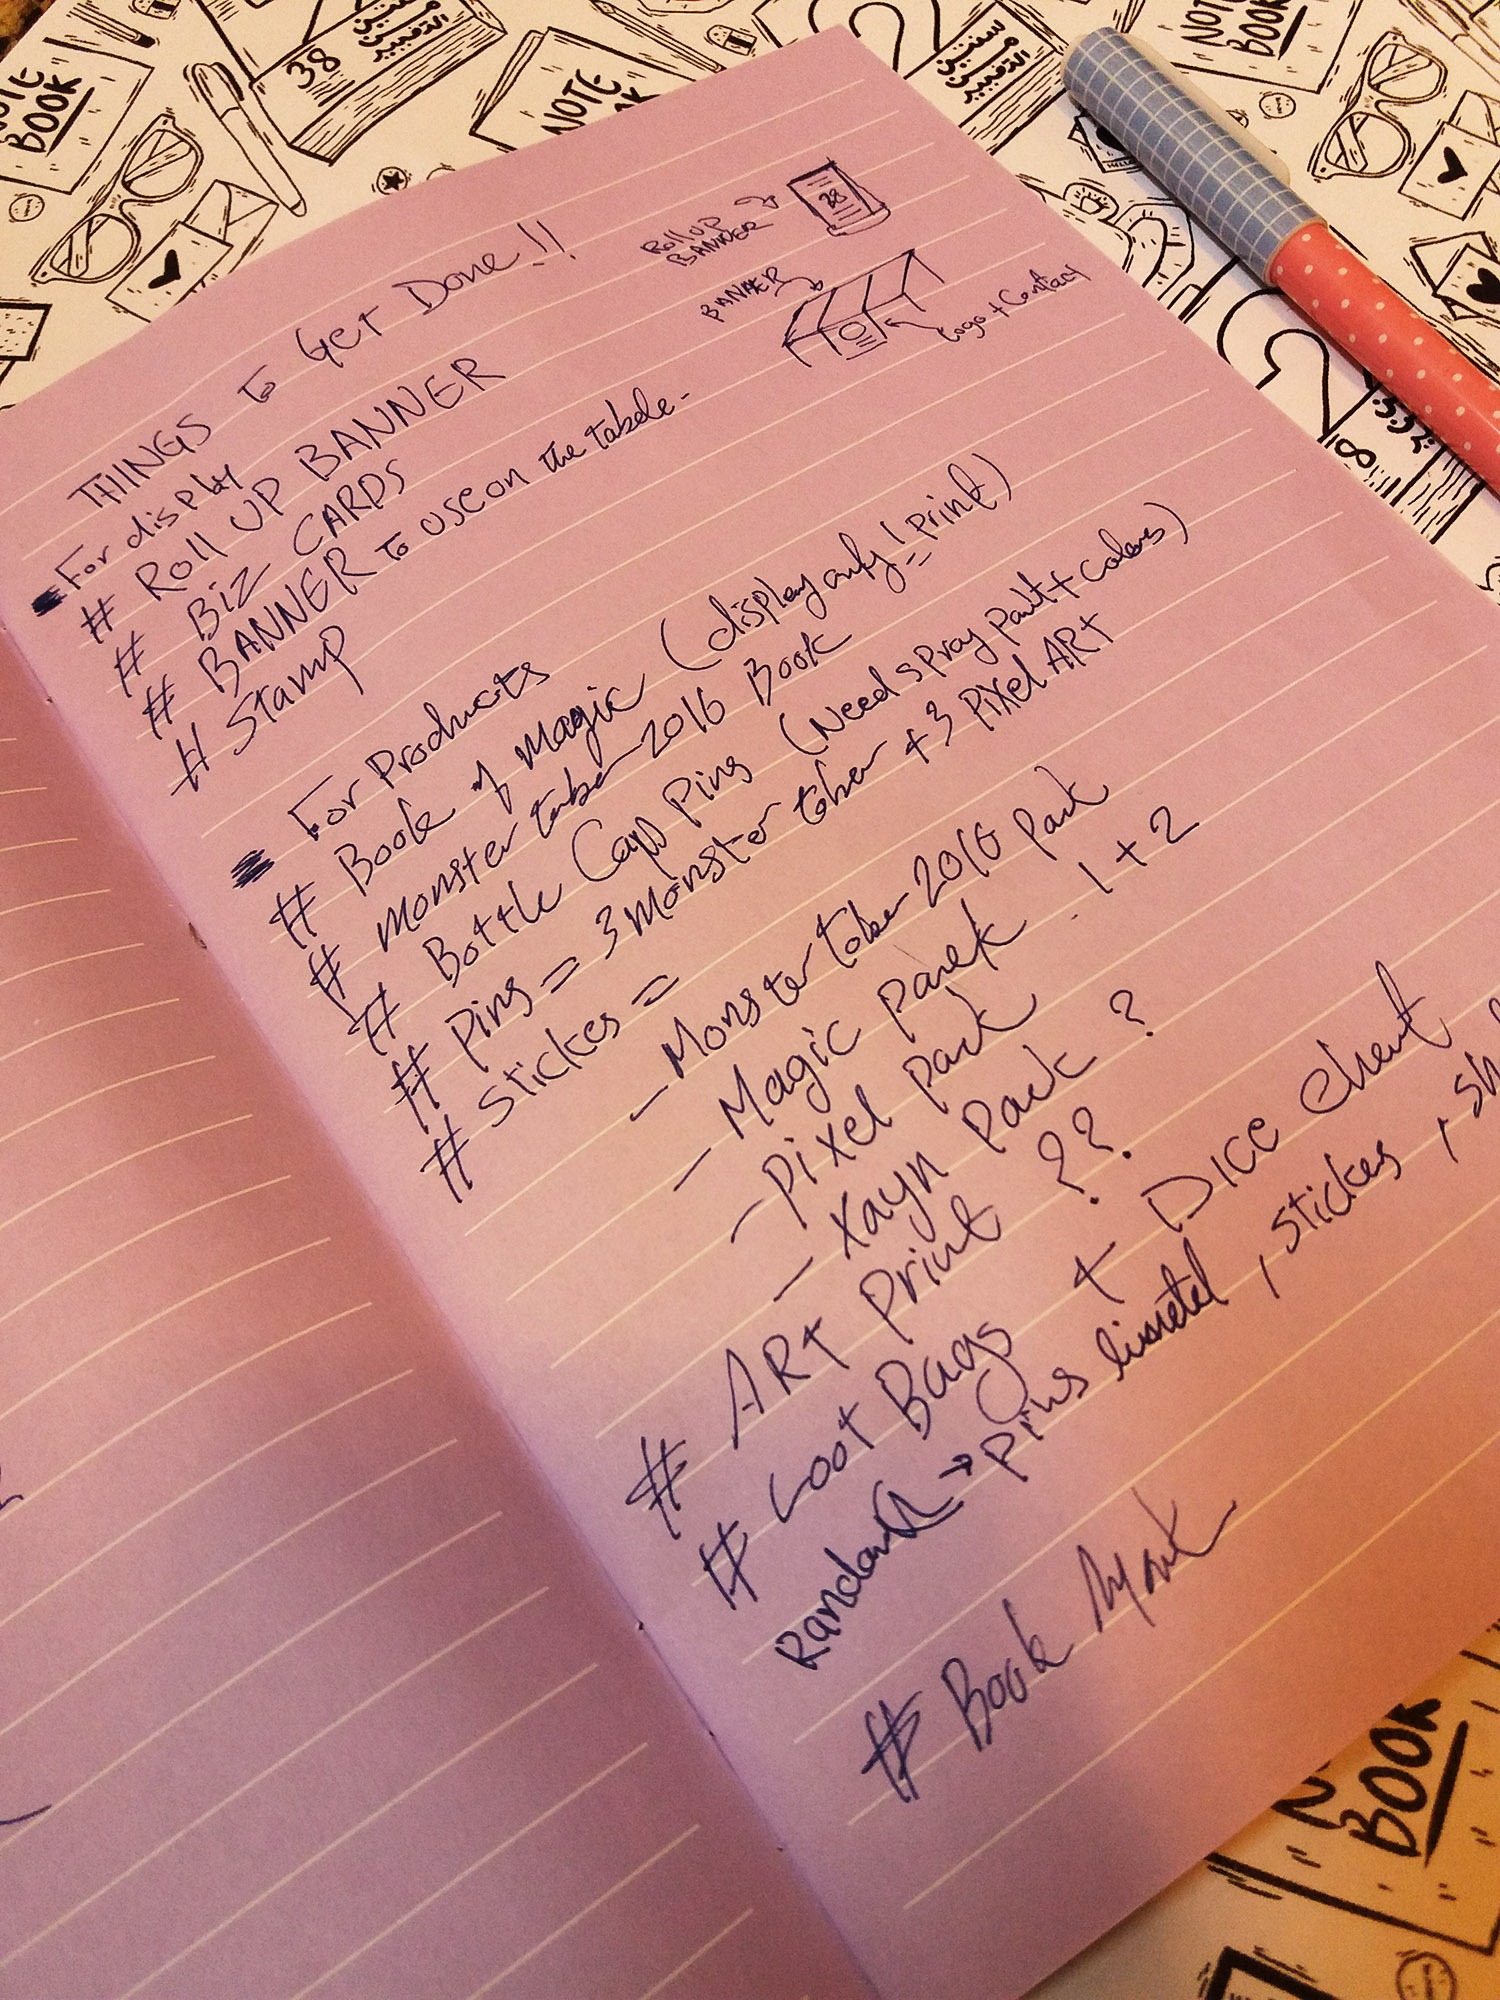 THINGS to Get Done!!
For display
# Roll UP BANNER
# BiZ CARDS
# BANNER to use on the tabele-
# Stamp
Roll UP
BANNER
38
BANNER
logo + Contact
For Products
# Book of Magic (display only! = print)
# Monster tober 2016 Book
# Bottle Caps Pins (Need spray paint + colors)
# Pins = 3 Monster tober + 3 PiXel ART
# Stickes =
- Monster tober 2016 Pack
- Magic Pack 1 + 2
- PiXel Pack
- Xayn Pack ?
# ART Print ??
# Loot Bags + DICE Chart
Random → Pins , stickes , sh
# Book Mark
NOTE
BOOK
38
سنتين
مسن
NOTE
NOTE
BOOK
سنتين
مسن
38
BOOK